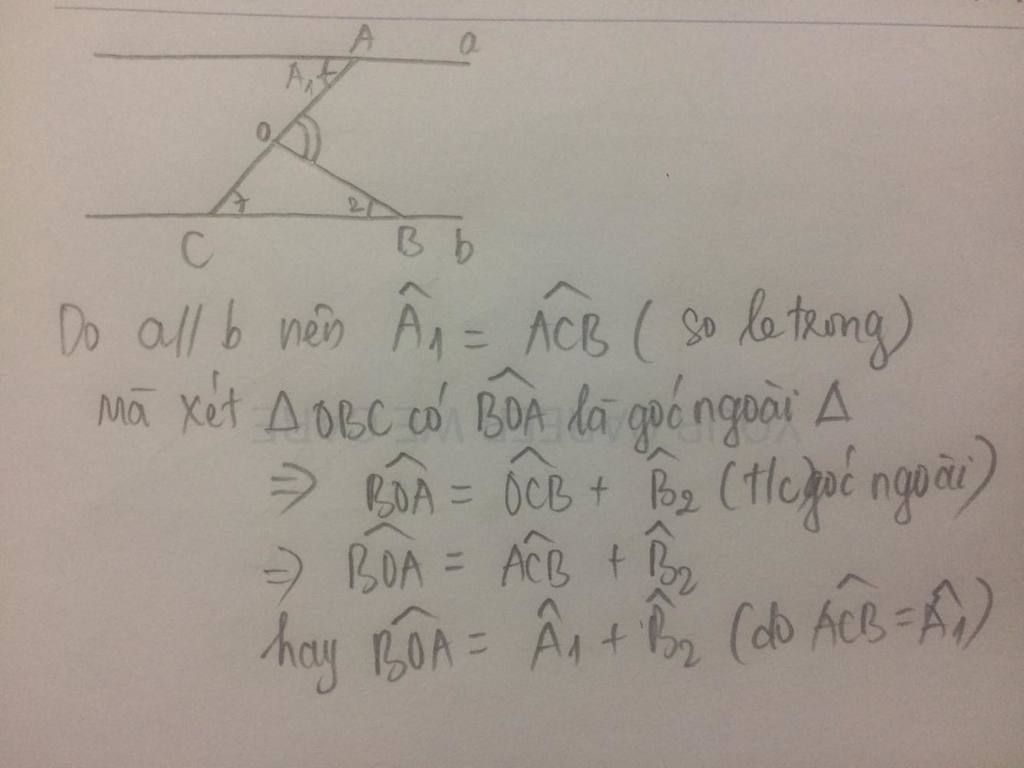 A a
A₁
O
2
C B b
Do a // b nên Â₁ = ACB̂ ( so le trong)
mà xét Δ OBC có BOÂ là góc ngoài Δ
=> BOÂ = OCB̂ + B̂₂ (t/c góc ngoài)
=> BOÂ = ACB̂ + B̂₂
hay BOÂ = Â₁ + B̂₂ (do ACB̂ = Â₁)